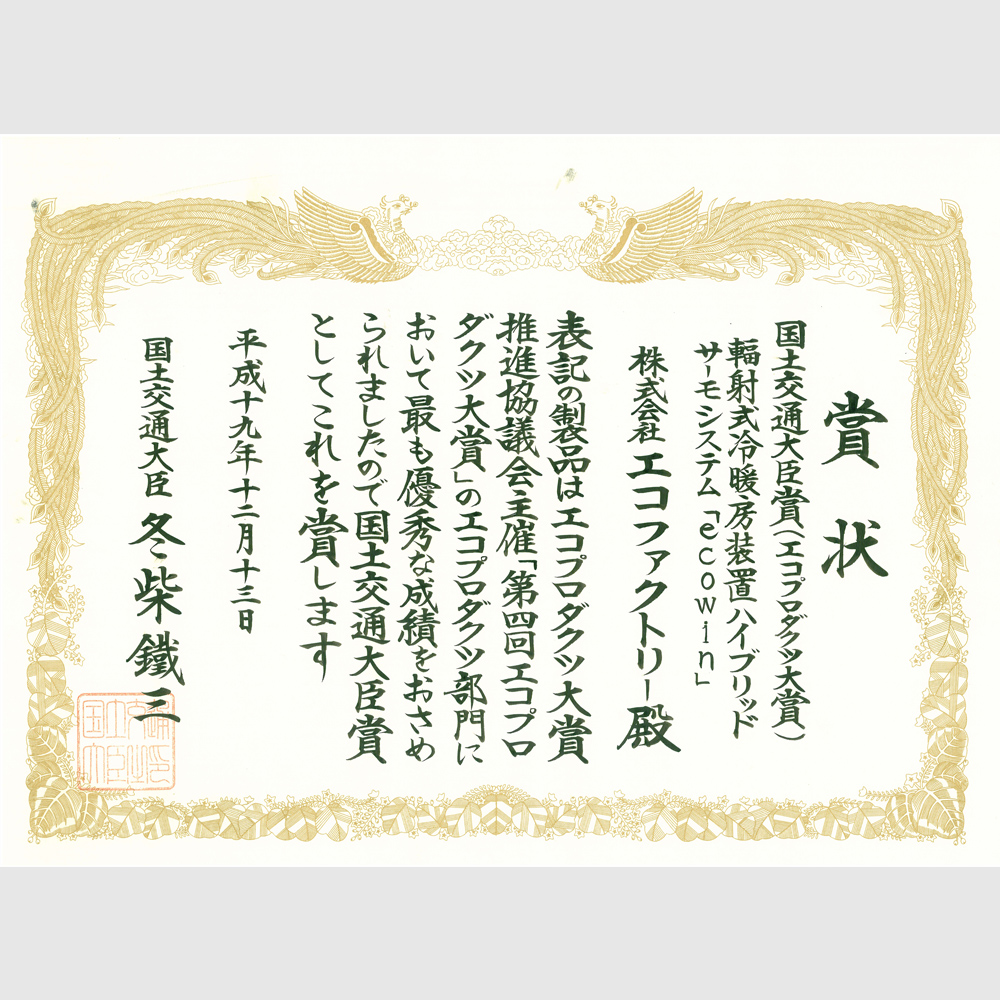 賞状
国土交通大臣賞(エコプロダクツ大賞)
輻射式冷暖房装置ハイブリッド
サーモシステム「ecowin」
株式会社エコファクトリー殿
表記の製品はエコプロダクツ大賞
推進協議会主催「第四回エコプロ
ダクツ大賞」のエコプロダクツ部門に
おいて最も優秀な成績をおさめ
られましたので国土交通大臣賞
としてこれを賞します
平成十九年十二月十三日
国土交通大臣 冬柴鐵三